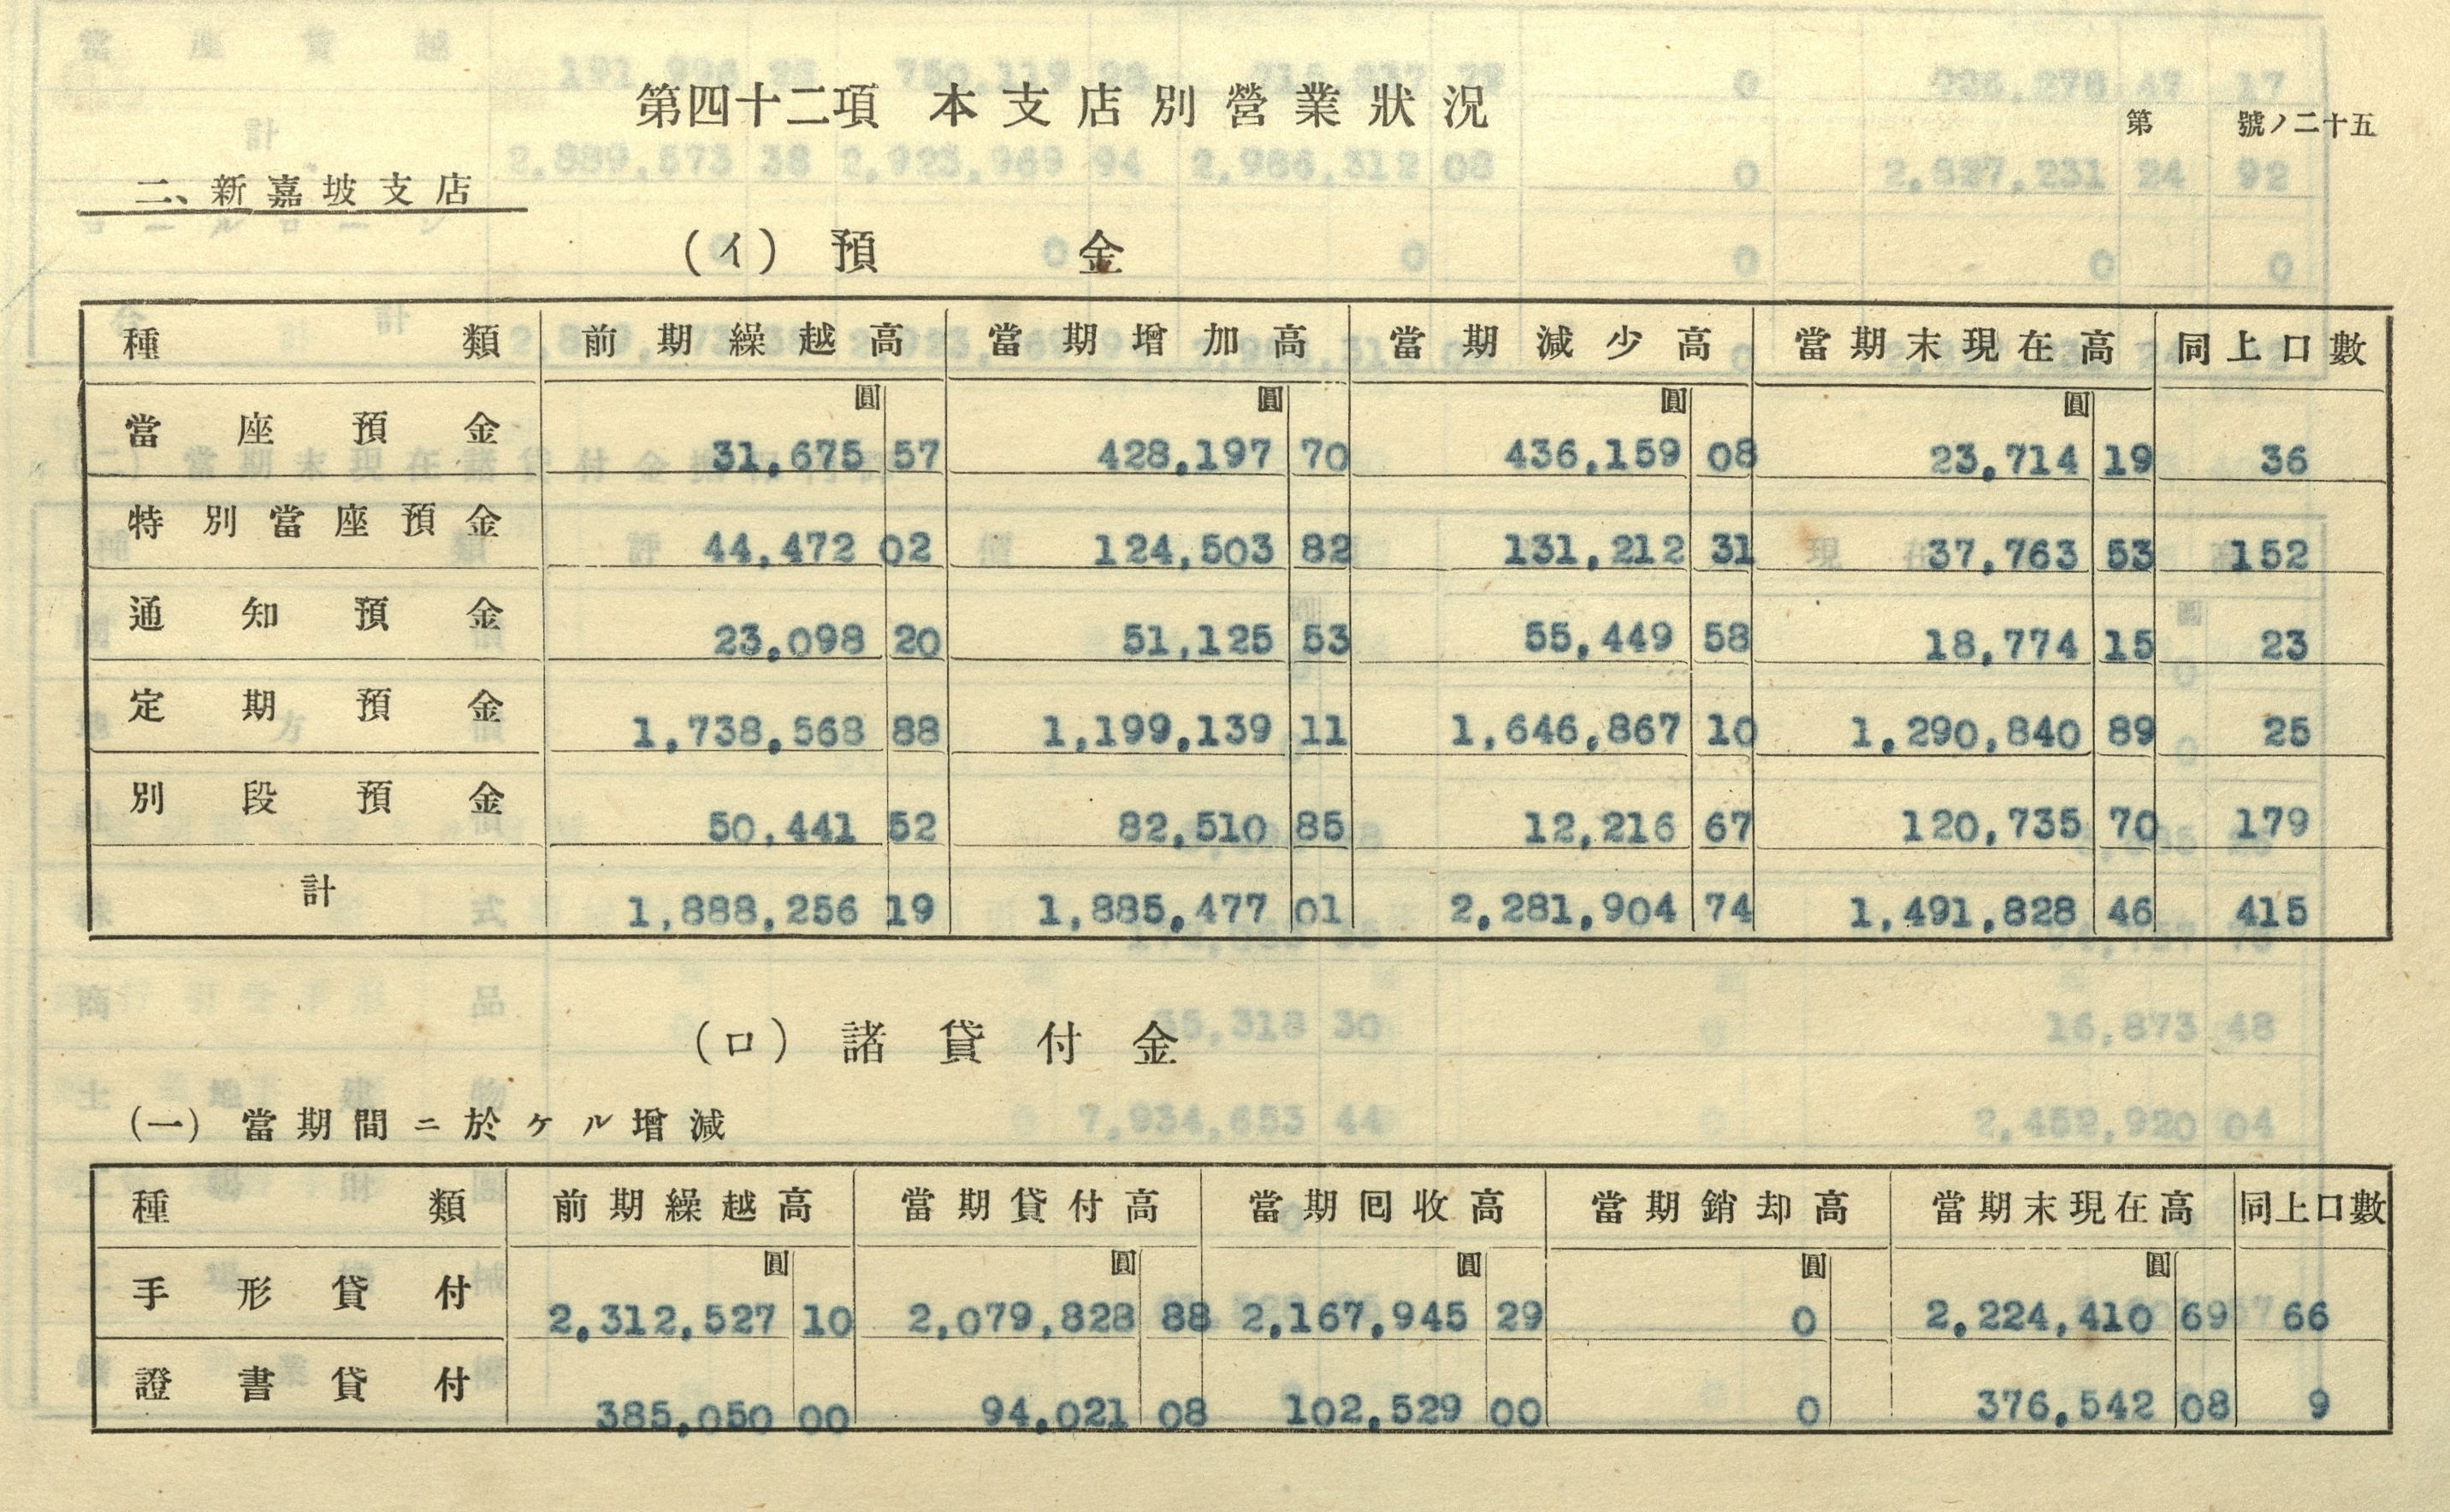 第四十二項 本支店別營業狀況
第 號ノ二十五
二、新嘉坡支店
(イ) 預金
種類 前期繰越高 當期增加高 當期減少高 當期末現在高 同上口數
圓 圓 圓 圓
當座預金 31,675 57 428,197 70 436,159 08 23,714 19 36
特別當座預金 44,472 02 124,503 82 131,212 31 37,763 53 152
通知預金 23,098 20 51,125 53 55,449 58 18,774 15 23
定期預金 1,738,568 88 1,199,139 11 1,646,867 10 1,290,840 89 25
別段預金 50,441 52 82,510 85 12,216 67 120,735 70 179
計 1,888,256 19 1,885,477 01 2,281,904 74 1,491,828 46 415
(ロ) 諸貸付金
(一) 當期間ニ於ケル增減
種類 前期繰越高 當期貸付高 當期囘收高 當期銷却高 當期末現在高 同上口數
圓 圓 圓 圓 圓
手形貸付 2,312,527 10 2,079,828 88 2,167,945 29 0 2,224,410 69 66
證書貸付 385,050 00 94,021 08 102,529 00 0 376,542 08 9